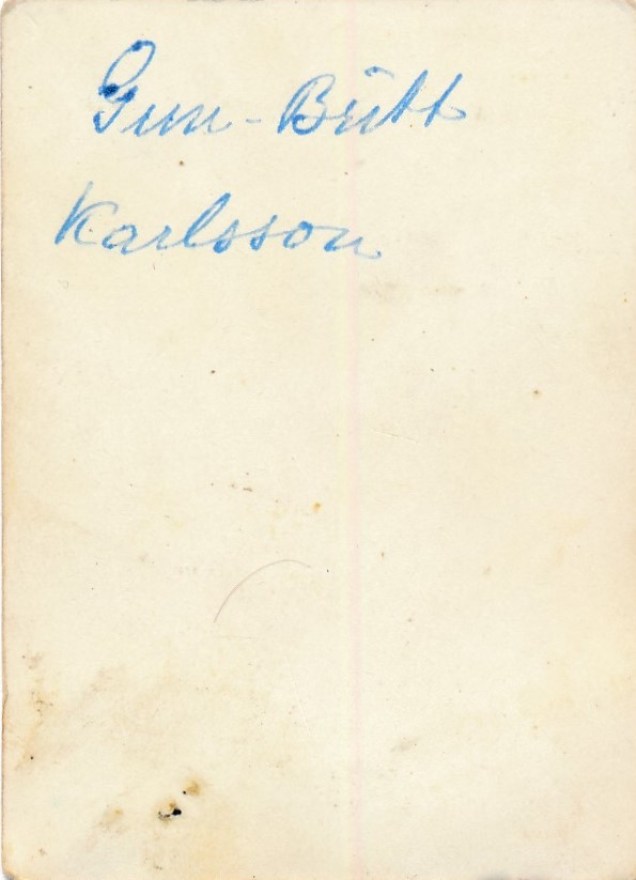 Gun-Britt
Karlsson